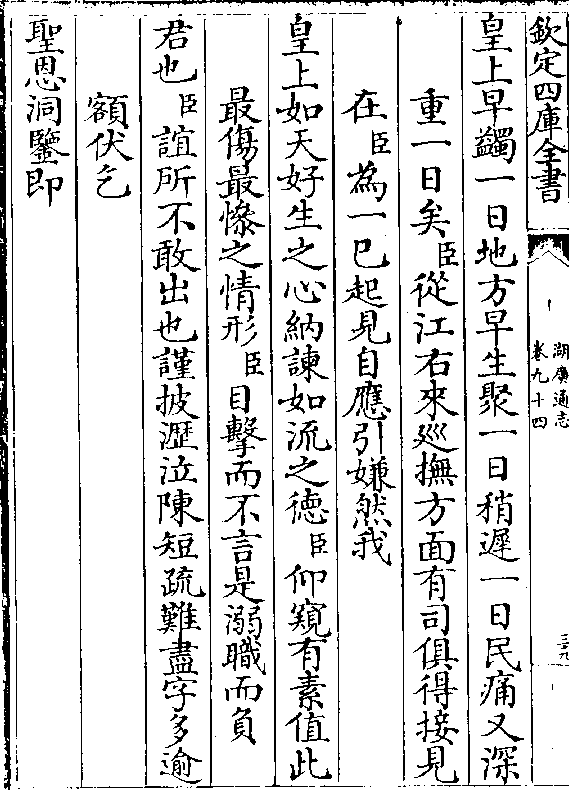 欽定四庫全書
湖廣通志
卷九十四
皇上早蠲一日地方早生聚一日稍遲一日民痛又深
重一日矣臣從江右來廵撫方面有司俱得接見
在臣為一已起見自應引嫌然我
皇上如天好生之心納諫如流之德臣仰窺有素值此
最傷最慘之情形臣目擊而不言是溺職而負
君也臣誼所不敢出也謹披瀝泣陳短疏難盡字多逾
額伏乞
聖恩洞鑒即